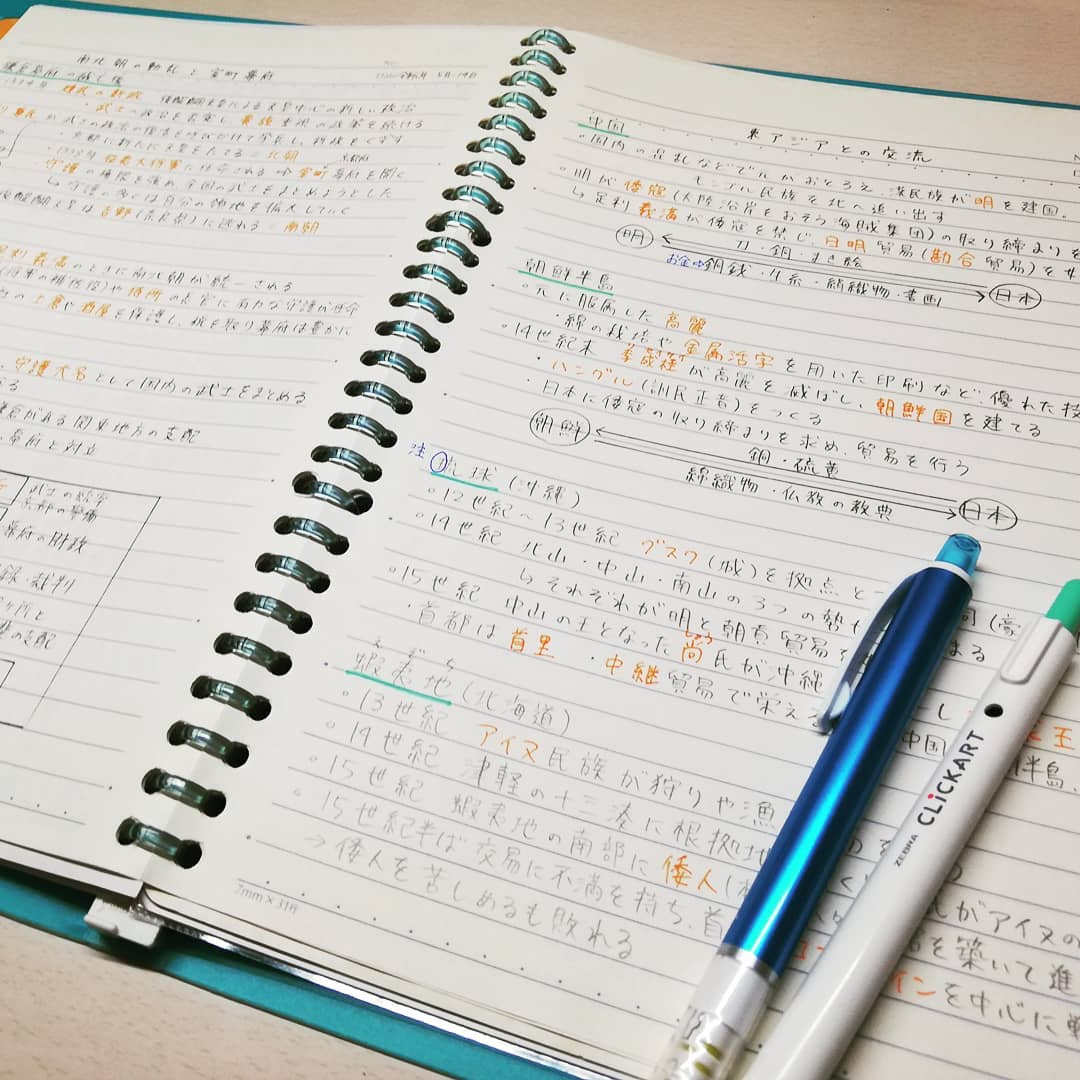 南北朝の動乱と室町幕府
鎌倉幕府の滅亡後
建武の新政 後醍醐天皇による天皇中心の新しい政治
・武士の政治を否定し貴族重視の政策を続ける
が武士の政治の復活を呼びかけて挙兵し、新政をくずす
・京都に新たに天皇をたてる=北朝
・1338年 征夷大将軍に任命される→室町幕府を開く
守護の権限を強め、全国の武士をまとめようとした
↳守護の多くは自分の領地を拡大していく
後醍醐天皇は吉野(奈良県)に逃れる=南朝
足利義満のときに南北朝が統一される
の土倉や酒屋を保護し、税を取り幕府は豊かに
守護大名として国内の武士をまとめる
がある関東地方の支配
幕府と対立
武士の統率
京都の警備
幕府の財政
記録・裁判
東アジアとの交流
中国
○国内の混乱などで元がおとろえ、漢民族が明を建国。
モンゴル民族を北へ追い出す
○明が倭寇(大陸沿岸をおそう海賊集団)の取り締まりを
↳足利義満が倭寇を禁じ、日明貿易(勘合貿易)を
明
刀・銅・まき絵
お金→銅銭・生糸・絹織物・書画
日本
朝鮮半島
○元に服属した高麗
・綿の栽培や金属活字を用いた印刷など、優れた技
○14世紀末 李成桂が高麗を滅ぼし、朝鮮国を建てる
・ハングル(訓民正音)をつくる
・日本に倭寇の取り締まりを求め、貿易を行う
朝鮮
銅・硫黄
綿織物・仏教の教典
日本
注
琉球(沖縄)
○12世紀〜13世紀 グスク(城)を拠点と
○14世紀 北山・中山・南山の3つの勢
↳それぞれが明と朝貢貿易 まる
○15世紀 中山の王となった尚氏が沖縄
しょう
・首都は首里 ・中継貿易で栄える 中国 半島、
えぞち
蝦夷地(北海道)
○13世紀 アイヌ民族が狩りや漁
○14世紀 津軽の十三湊に根拠地
○15世紀 蝦夷地の南部に倭人(
○15世紀半ば 交易に不満を持ち、首 インを中心に戦
→倭人を苦しめるも敗れる
がアイヌの
を築いて進
7mm×31行
ZEBRA CLiCKART